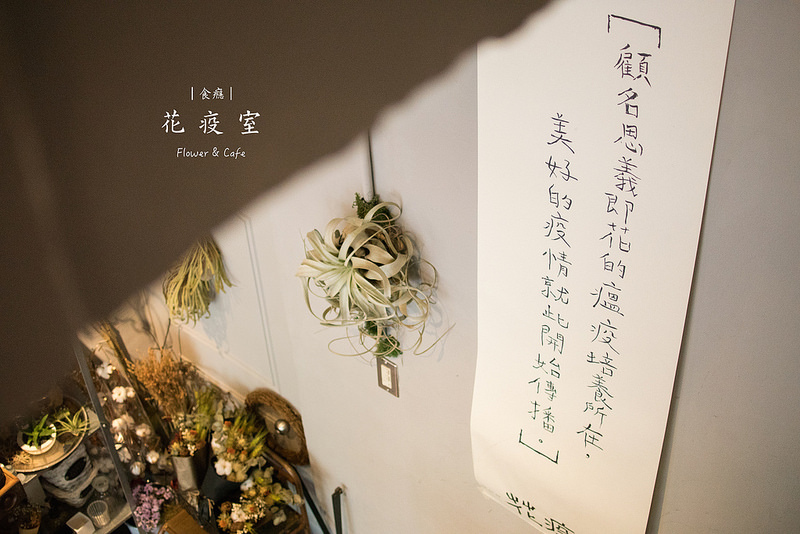 |食癮|
花疫室
Flower & Cafe
「顧名思義即花的瘟疫培養所在，
美好的疫情就此開始傳播。」
花疫